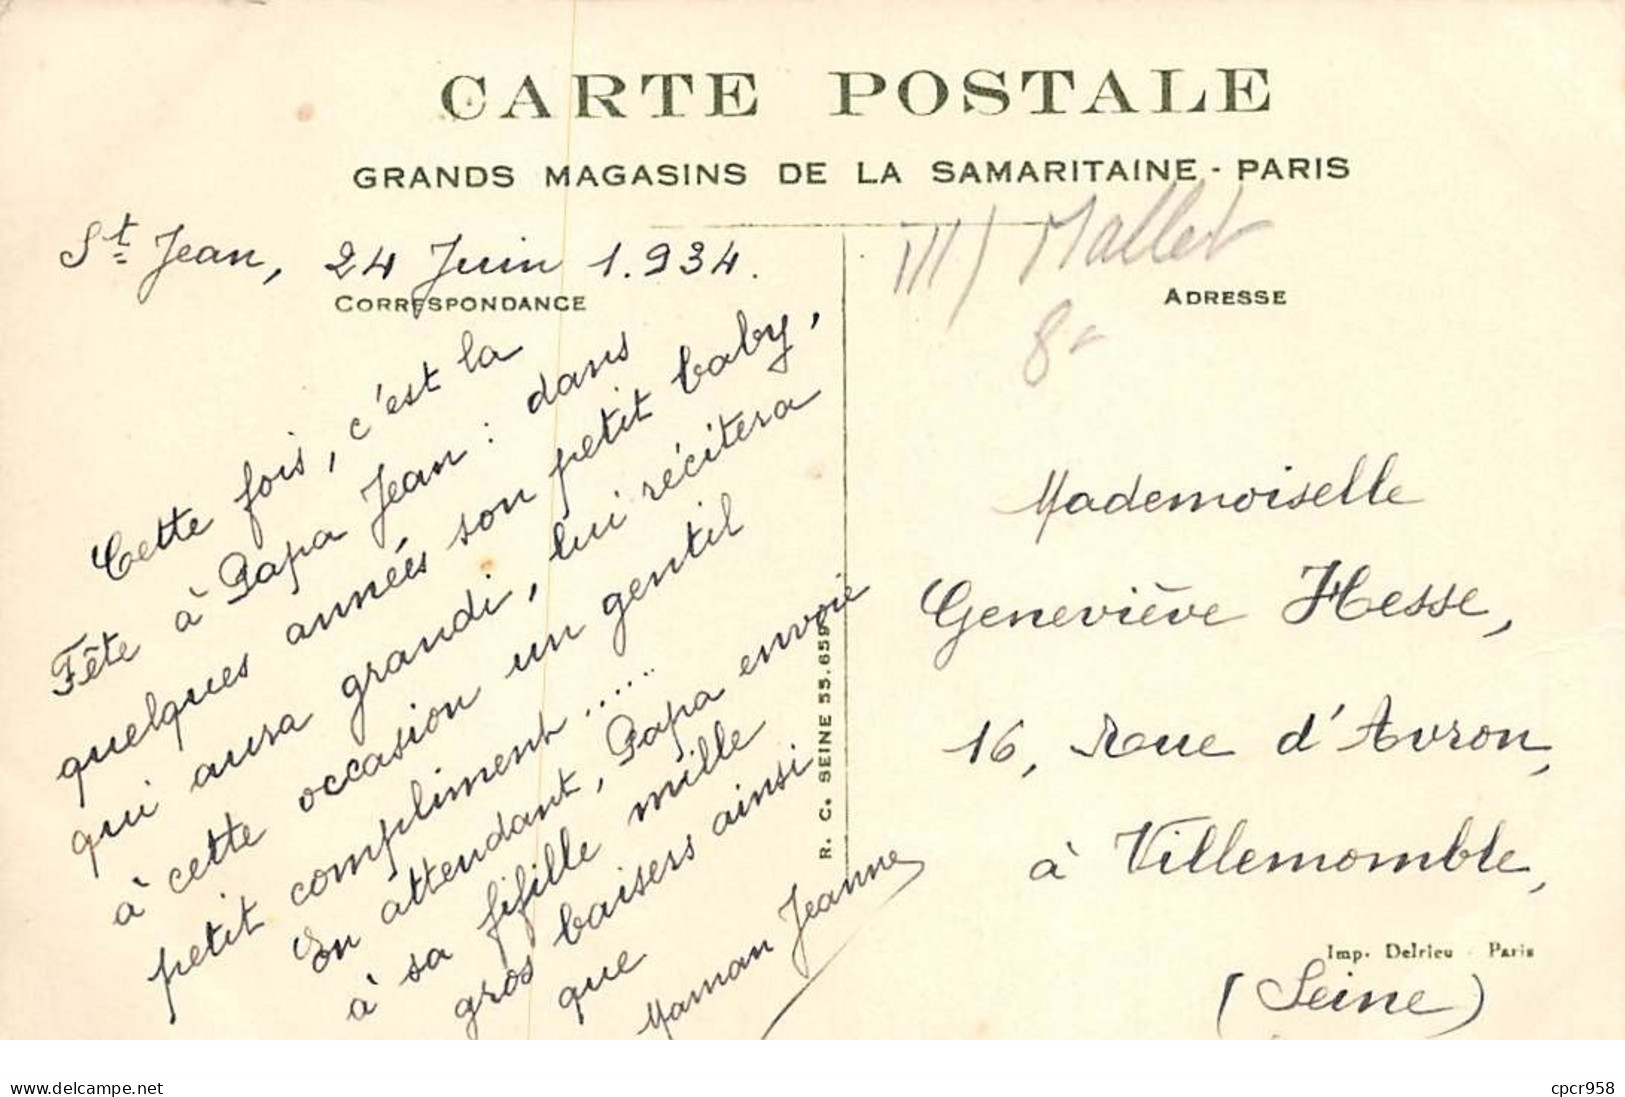 CARTE POSTALE
GRANDS MAGASINS DE LA SAMARITAINE - PARIS
St Jean, 24 Juin 1.934.
CORRESPONDANCE
Cette fois, c'est la
Fête à Papa Jean : dans
quelques années son petit baby,
qui aura grandi, lui récitera
à cette occasion un gentil
petit compliment......
En attendant, Papa envoie
à sa fifille mille
gros baisers ainsi
que
Maman Jeanne
R. C. SEINE 55.659
III) Mallet
8-
ADRESSE
Mademoiselle
Geneviève Hesse,
16, Rue d'Avron,
à Villemomble,
Imp. Delrieu - Paris
(Seine)
www.delcampe.net
cpcr958